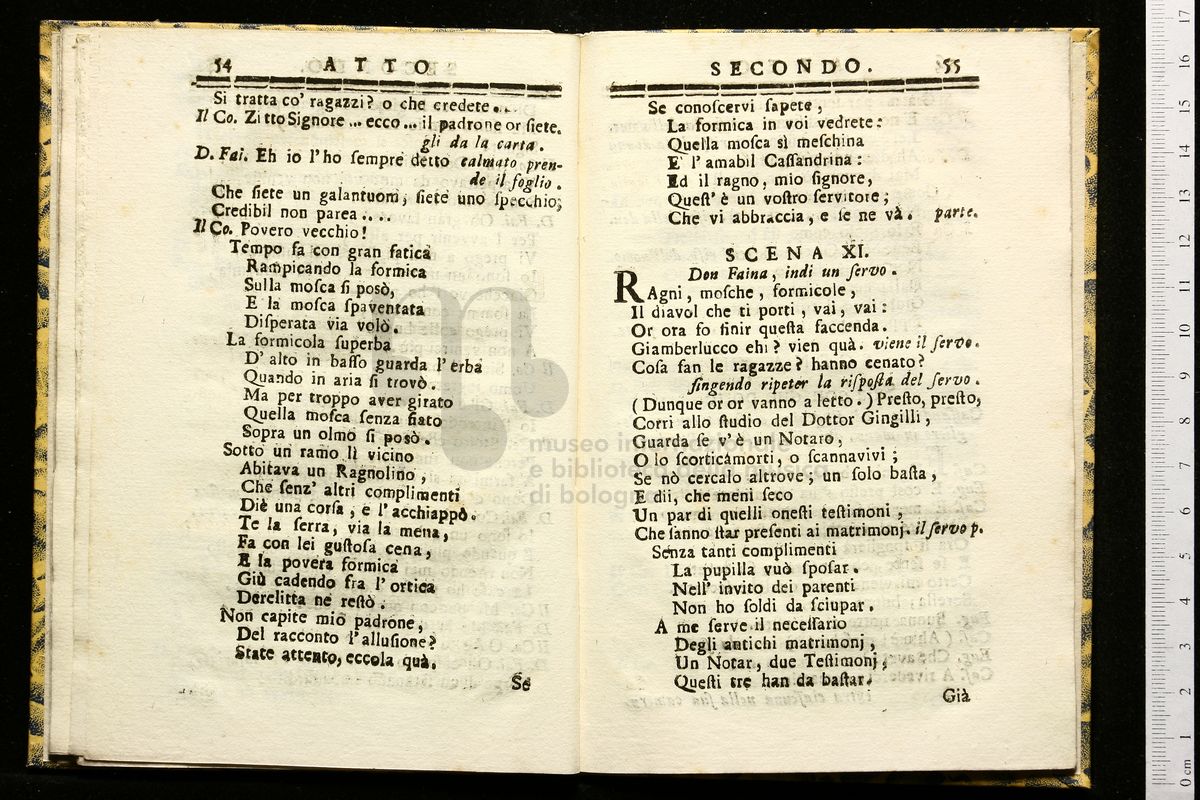 54 ATTO
Si tratta co' ragazzi? o che credete....
Il Co. Zitto Signore... ecco... il padrone or siete.
gli da la carta.
D. Fai. Eh io l'ho sempre detto calmato pren-
de il foglio.
Che siete un galantuom, siete uno specchio;
Credibil non parea....
Il Co. Povero vecchio!
Tempo fa con gran fatica
Rampicando la formica
Sulla mosca si posò,
E la mosca spaventata
Disperata via volò.
La formicola superba
D' alto in basso guarda l' erba
Quando in aria si trovò.
Ma per troppo aver girato
Quella mosca senza fiato
Sopra un olmo si posò.
Sotto un ramo lì vicino
Abitava un Ragnolino,
Che senz' altri complimenti
Diè una corsa, e l' acchiappò.
Te la serra, via la mena,
Fa con lei gustosa cena,
E la povera formica
Giù cadendo fra l' ortica
Derelitta ne restò.
Non capite mio padrone,
Del racconto l'allusione?
State attento, eccola quà.
Se
SECONDO. 55
Se conoscervi sapete,
La formica in voi vedrete:
Quella mosca sì meschina
E' l' amabil Cassandrina:
Ed il ragno, mio signore,
Quest' è un vostro servitore;
Che vi abbraccia, e se ne và. parte.
SCENA XI.
Don Faina, indi un servo.
RAgni, mosche, formicole,
Il diavol che ti porti, vai, vai:
Or ora fo finir questa faccenda.
Giamberlucco ehi? vien quà. viene il servo.
Cosa fan le ragazze? hanno cenato?
fingendo ripeter la risposta del servo.
(Dunque or or vanno a letto.) Presto, presto,
Corri allo studio del Dottor Gingilli,
Guarda se v'è un Notaro,
O lo scorticamorti, o scannavivi;
Se nò cercalo altrove; un solo basta,
E dii, che meni seco
Un par di quelli onesti testimoni,
Che sanno star presenti ai matrimonj. il servo p.
Senza tanti complimenti
La pupilla vuò sposar.
Nell' invito dei parenti
Non ho soldi da sciupar.
A me serve il necessario
Degli antichi matrimonj,
Un Notar, due Testimonj,
Questi tre han da bastar.
Già
museo in
e bibliote
di bologna
0 cm 1 2 3 4 5 6 7 8 9 10 11 12 13 14 15 16 17